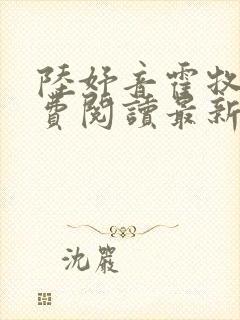 陸妤音霍牧
費閱讀最新
沈嚴